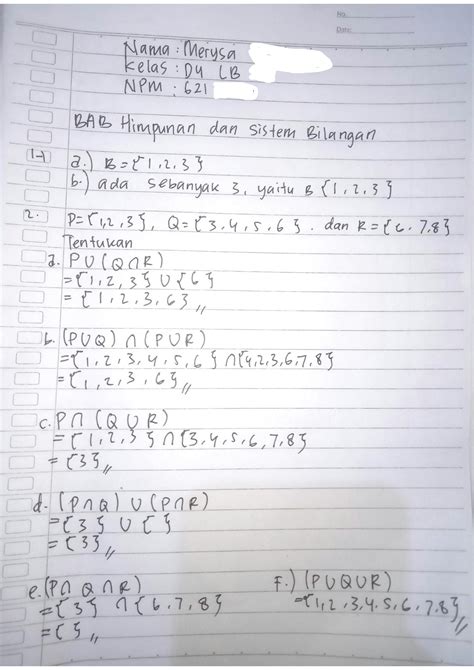 No.
Date:
Nama : Merysa
Kelas : D4 LB
NPM : 621
BAB Himpunan dan Sistem Bilangan
1-) a.) B = {1, 2, 3}
b.) ada sebanyak 3, yaitu B {1, 2, 3}
2. P = {1, 2, 3}, Q = {3, 4, 5, 6}. dan R = {6, 7, 8}
Tentukan
a. P ∪ (Q ∩ R)
= {1, 2, 3} ∪ {6}
= {1, 2, 3, 6} //
b. (P ∪ Q) ∩ (P ∪ R)
= {1, 2, 3, 4, 5, 6} ∩ {1, 2, 3, 6, 7, 8}
= {1, 2, 3, 6} //
c. P ∩ (Q ∪ R)
= {1, 2, 3} ∩ {3, 4, 5, 6, 7, 8}
= {3} //
d. (P ∩ Q) ∪ (P ∩ R)
= {3} ∪ { }
= {3} //
e. (P ∩ Q ∩ R)
= {3} ∩ {6, 7, 8}
= { } //
F.) (P ∪ Q ∪ R)
= {1, 2, 3, 4, 5, 6, 7, 8} //